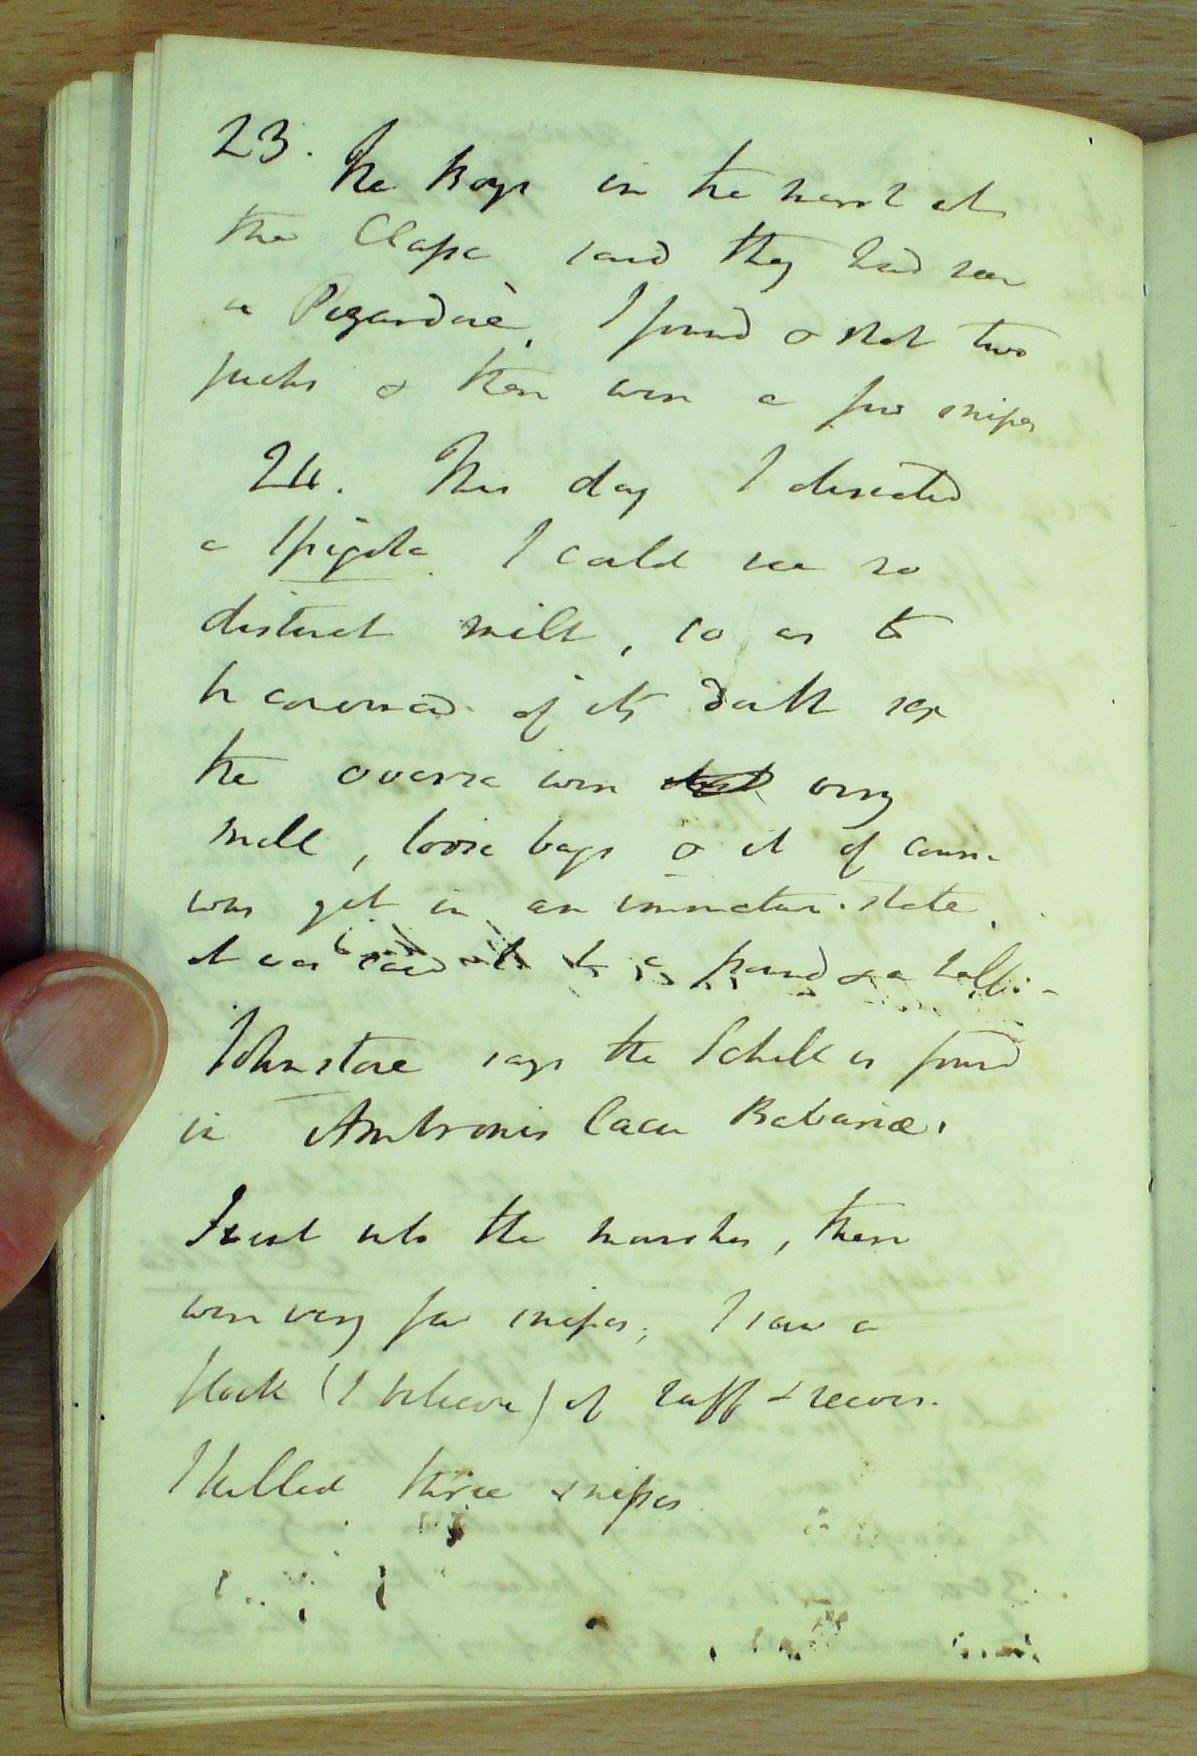 23. The Boys in the marsh at
the Clapa said they had seen
a Pizardiere, I found & shot two
jacks & there were a few snipes
24. This day I dissected
a Spigola. I could see no
distinct milt, so as to
be convinced of its doubl sex
the ovaria were very
small, loose bags & it of course
was yet in an immature state.
it was said to be a pound & a half.
Johnstone says the Schilk is found
in Ambronis Lacu Bavariæ.
I went into the marshes, there
were very few snipes, I saw a
flock (I believe) of ruff & reeves.
I killed three snipes